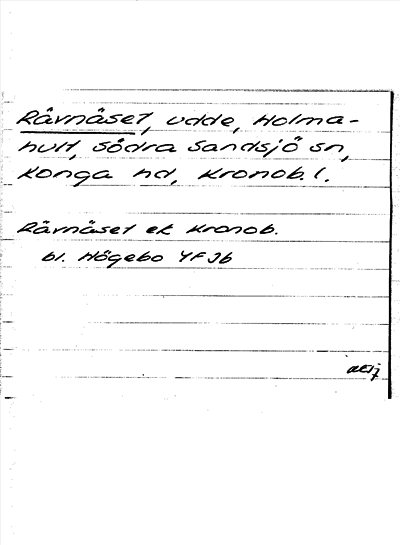 Rävnäset, udde, Holma-
hult, Södra Sandsjö sn,
Konga hd, Kronob. l.
Rävnäset ek Kronob.
bl. Högebo 4F Jb